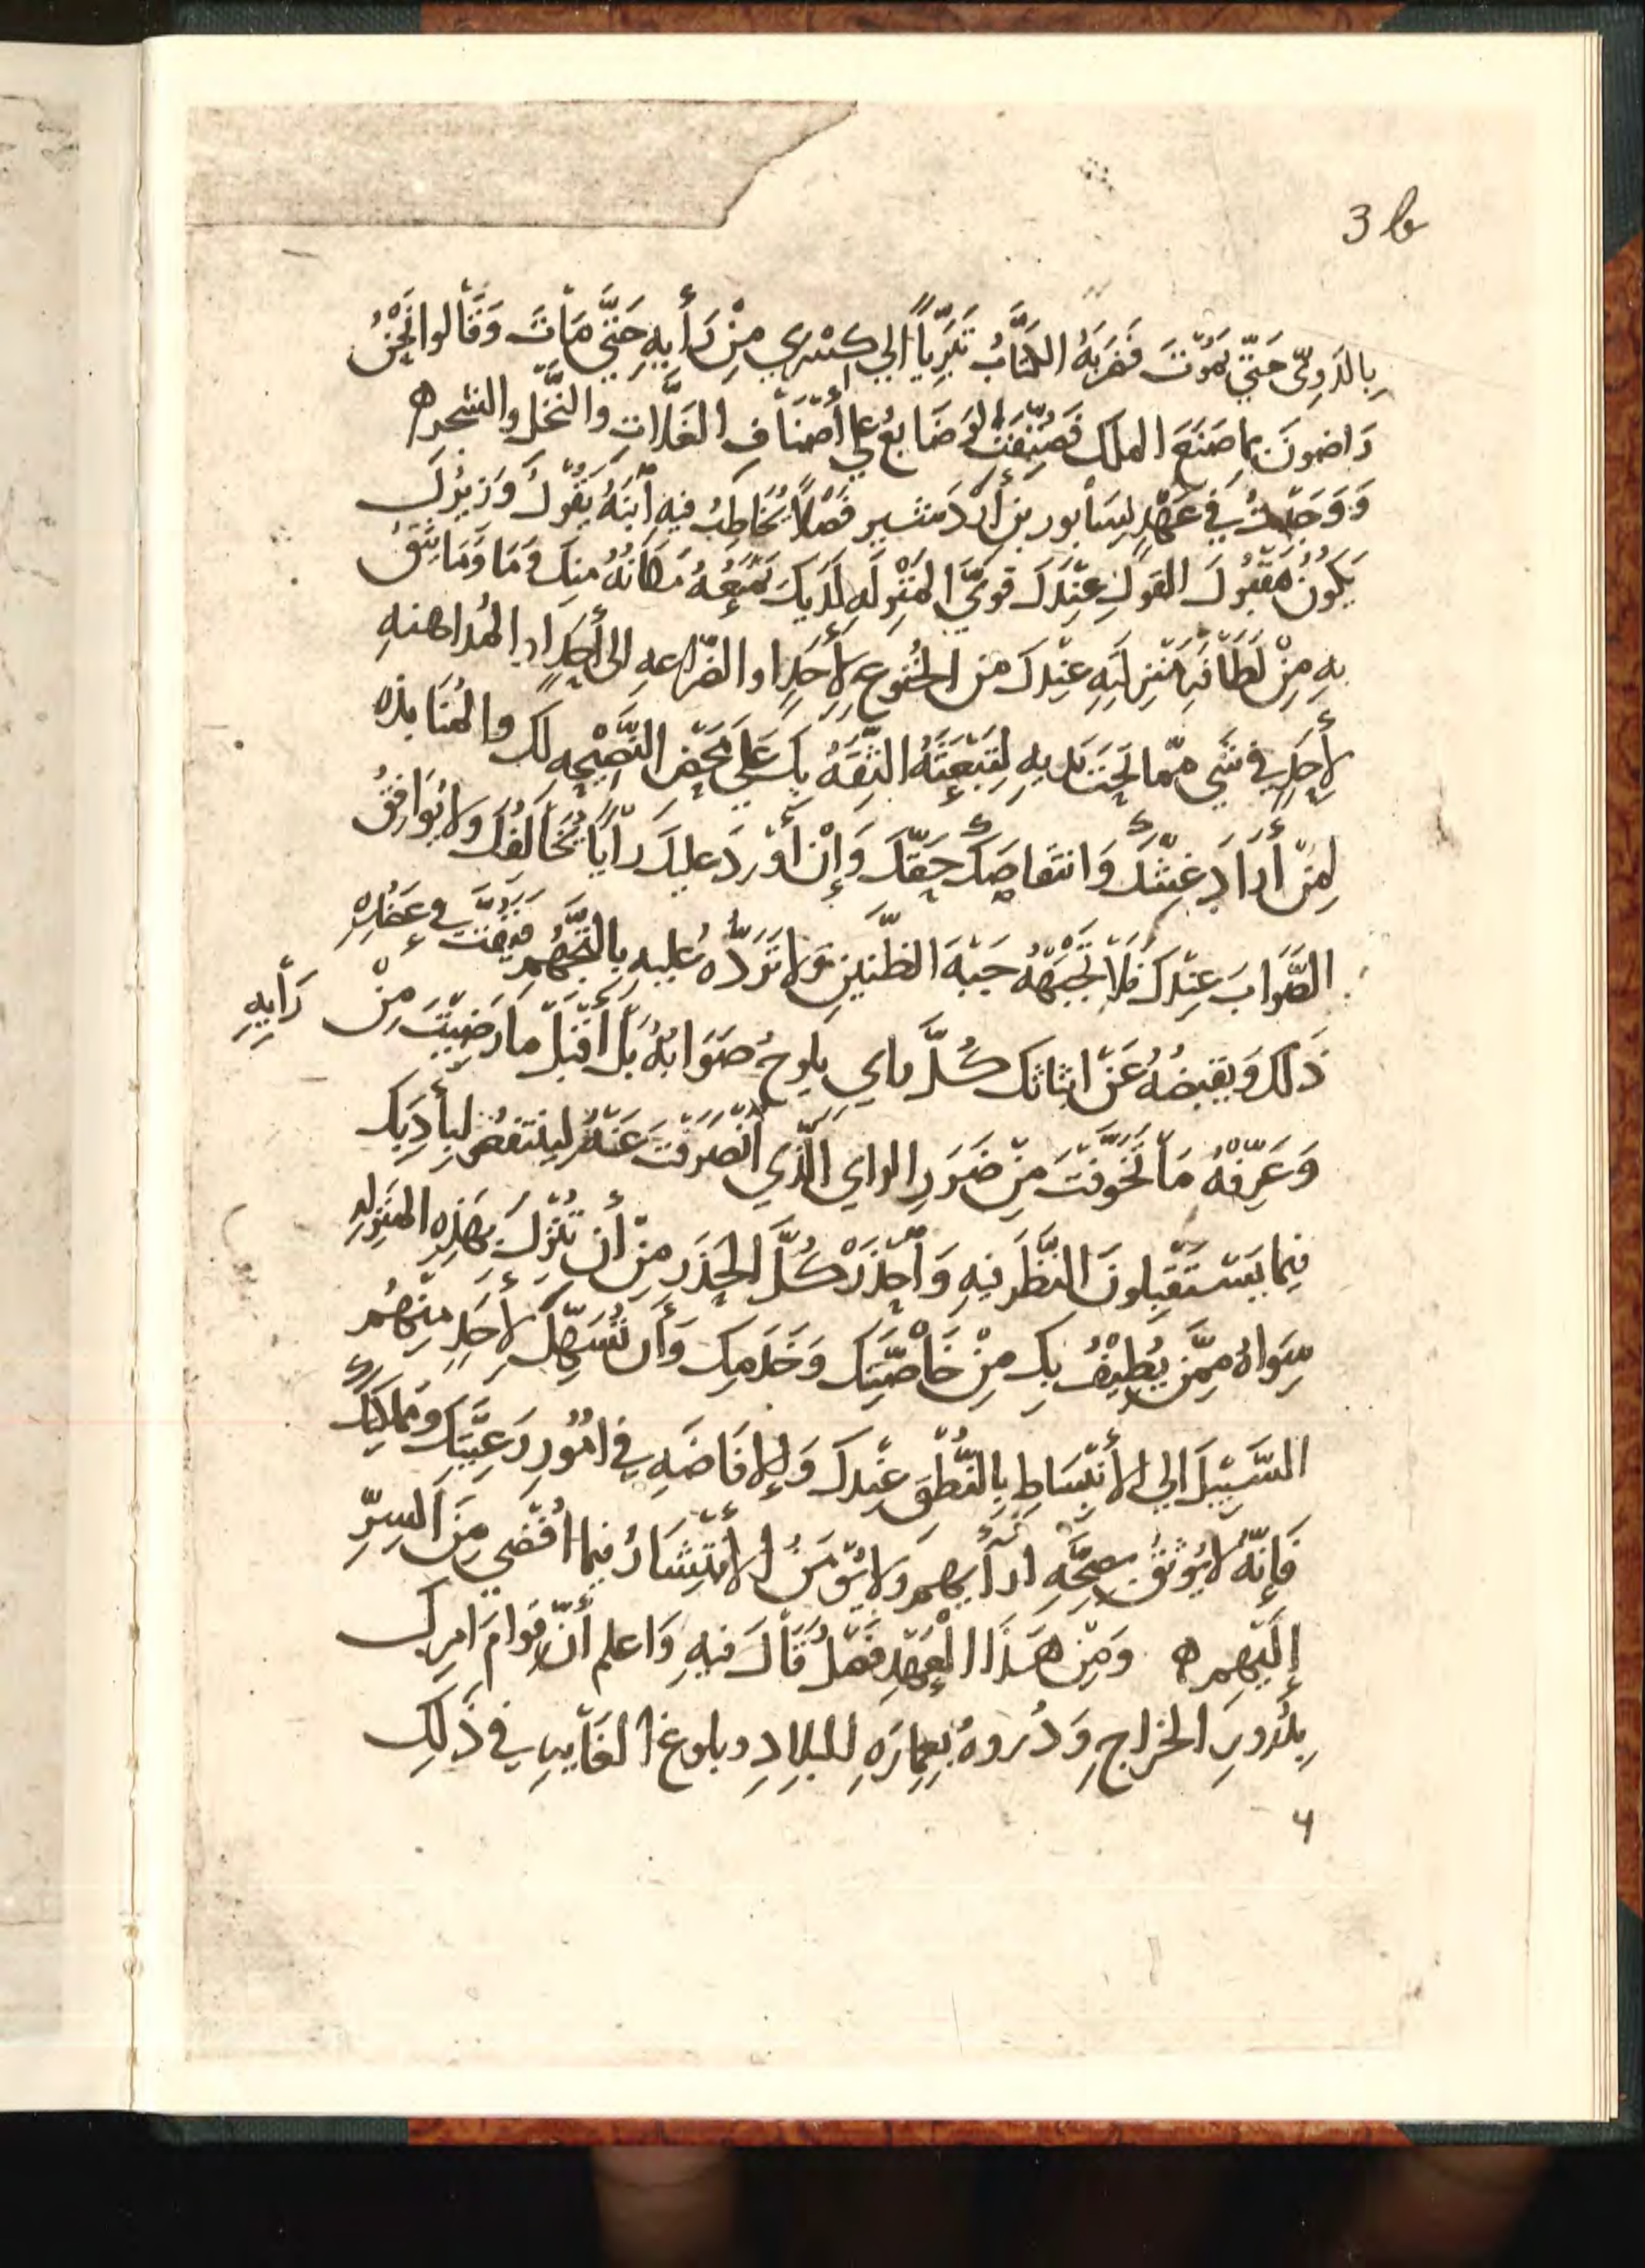 3 b
بِالدُّوِيّ حَتّي يَمُوْتَ فَضَرَبَهُ الكُتَّابُ تَبَرِّياً الي كِسْرَي مِنْ رَأيِهِ حَتَّي مَاتَ وَقَالوا نَحْنُ
رَاضونَ بما صَنَعَ الملك فَصُيِّفَتْ الوَضَايعُ عَلي أَصْنَافِ الغَلَّاتِ والنَّخْلِ والشَجرِه
وَوَجَدتُ في عَهْدٍ لِسَابور بن أَرْدَمشير فَصْلاً يُخَاطِبُ فيه اْبنَهُ يَقُوْلُ وَزِيْرُكَ
يَكُونُ مَقْبُولَ القَولِ عِنْدَكَ قوِيَّ المَنْزِلَهِ لَدَيكَ يَمْنَعُهُ مَكَانُهُ مِنكَ وَمَا وَمَا يَثِقُ
بِهِ مِنْ لَطَافَهِ مَنْزِلَتِهِ عِنْدَكَ من الخُنوعِ لِأَحَدٍ او الضَّرَاعهِ الى أَحَدٍ او المُداهنهِ
لِأَحَدٍ في شَي ممّا تَحْتَ يَديهِ لِتَبْعَثَهُ الثِّقَهُ بِكَ عَلَي مَحْضِ النَّصِيْحهِ لَكَ والمُنَابَذه
لِمَنْ أَرَادَ غِشَّكَ وَانتقَاصَكَ حَقَّكَ وَإِنْ أَوْرَدَ عليكَ رَأْيَاً يُخَالفُكَ وَلا يُوَافِقُ
الصَّوَابَ عِنْدَكَ فَلَا تَجْبَهْهُ جَبْهَ الظَّنينِ وَلا تَرُدَّهُ عَلَيهِ بِالتَّجَهُّمِ فَيَفُتَّ في عَضُدِهِ
ذَلكَ وَيقبضُهُ عَنْ ابثاثك كُلَّ راي يلوحُ صَوَابُهُ بَلْ أَقْبَلْ مَا رَضِيْتَ مِنْ رَأيِهِ
وَعَرِّفْهُ مَا تَخَوَّفْتَ مِنْ ضَرَرِ الراي الَّذِي اْنْصَرَفْتَ عَنْهُ لينتفعُ بِأَدَبِكَ
فِيما يَسْتَقبِلونَ النَّظَرَ فيهِ وَاْحْذَرْ كُلَّ الحَذَرِ مِنْ أَن تُنْزِلَ بِهَذِهِ المَنزِلهِ
سِوَاهُ مِمَّنْ يُطِيْفُ بِكَ مِنْ خَاْصَّتِكَ وَخَدَمِكَ وَأَن تُسَهِّلَ لأَحَدٍ مِنهُم
السَّبِيْلَ الي الأنبِسَاطِ بِالنُّطْقِ عِنْدَكَ وَالإِفَاضَهِ في امُوُرِ رَعِيَّتِكَ وَمَملكَتِكَ
فَإِنَّهُ لا يُوْثَقُ بِصِحَّهِ ارَأيهم ولا يُؤمَنُ الأنْتِشَارُ فيما اُفْضِي مِنَ السِرِّ
إِلَيْهِم ه وَمِنْ هَذَا الْعَهْدِ فَصْلٌ قَالَ فيهِ وَاعلم أَنَّ قِوامَ امرك
بِدُرُورِ الخَراجِ وَدُروهُ بِعِمَارَهِ للبِلادِ وبلوغ الغَاْيهِ في ذَلكَ
4